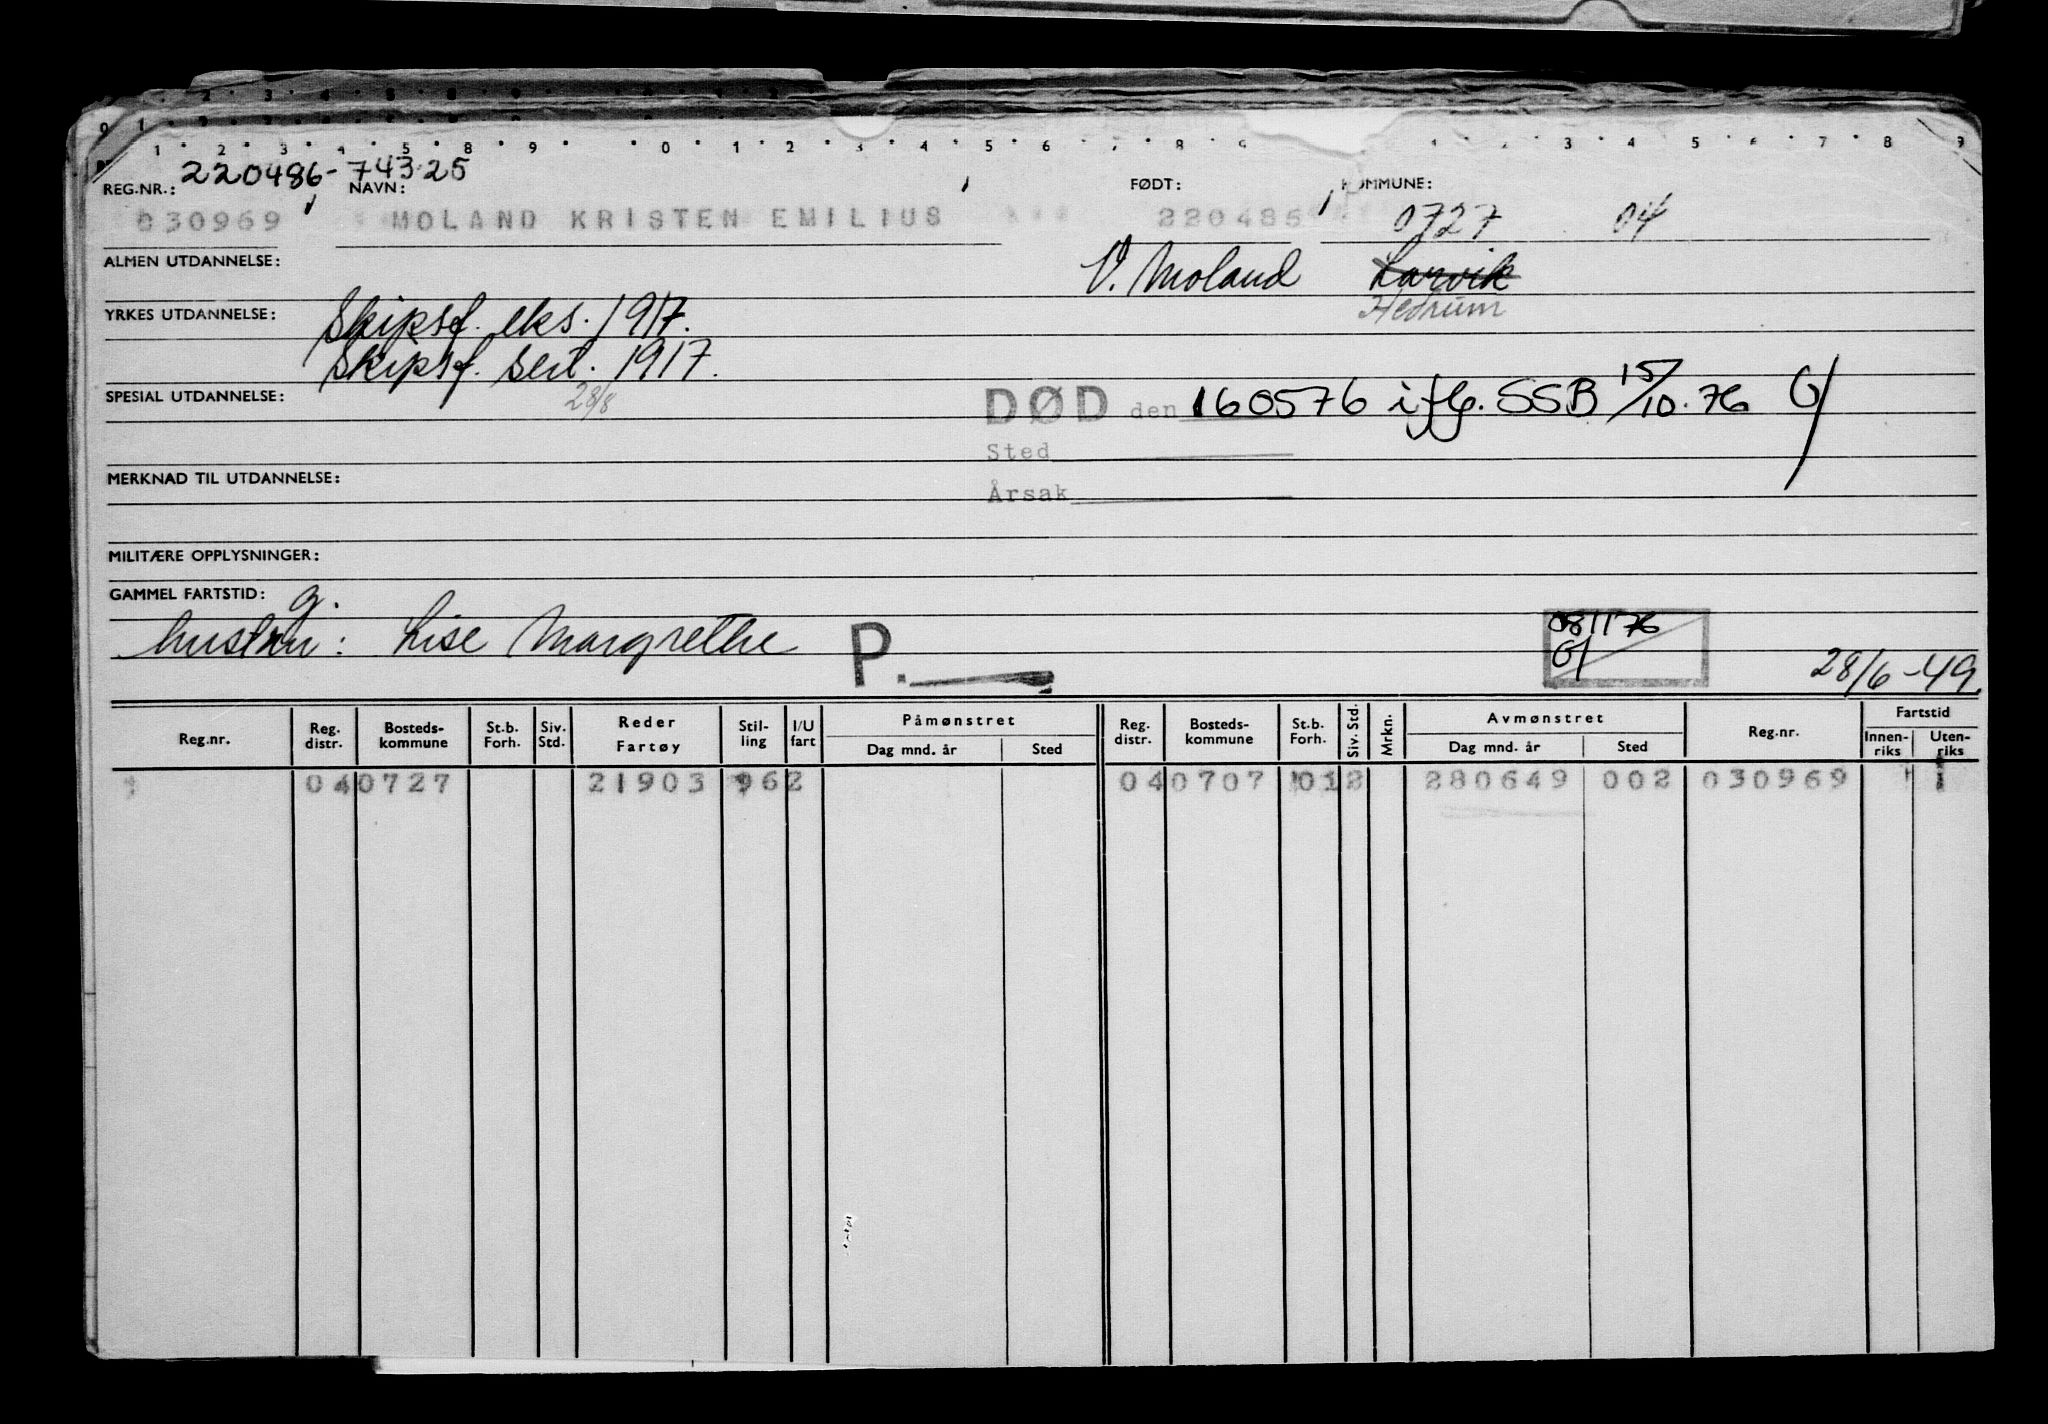 220486-743.25
REG.NR.: NAVN: FØDT: KOMMUNE:
030969 MOLAND KRISTEN EMILIUS 220486 0727 04
ALMEN UTDANNELSE: V. Moland Larvik
Hedrum
YRKES UTDANNELSE: Skipsf. eks. 1917.
Skipsf. sert. 1917.
28/8
SPESIAL UTDANNELSE: DØD den 160576 iflg. SSB 15/10.76 G/
Sted
MERKNAD TIL UTDANNELSE:
Årsak
MILITÆRE OPPLYSNINGER:
GAMMEL FARTSTID: g.
hustru: Lise Margrethe P. 081176
G/
28/6-49.
Reg.nr. Reg. distr. Bosteds-kommune St.b. Forh. Siv. Std. Reder Fartøy Stil-ling I/U fart Påmønstret Dag mnd. år Sted Reg. distr. Bosteds-kommune St.b. Forh. Siv. Std. Mrkn. Avmønstret Dag mnd. år Sted Reg.nr. Fartstid Innen-riks Uten-riks
040727 21903 962 040707 012 280649 002 030969